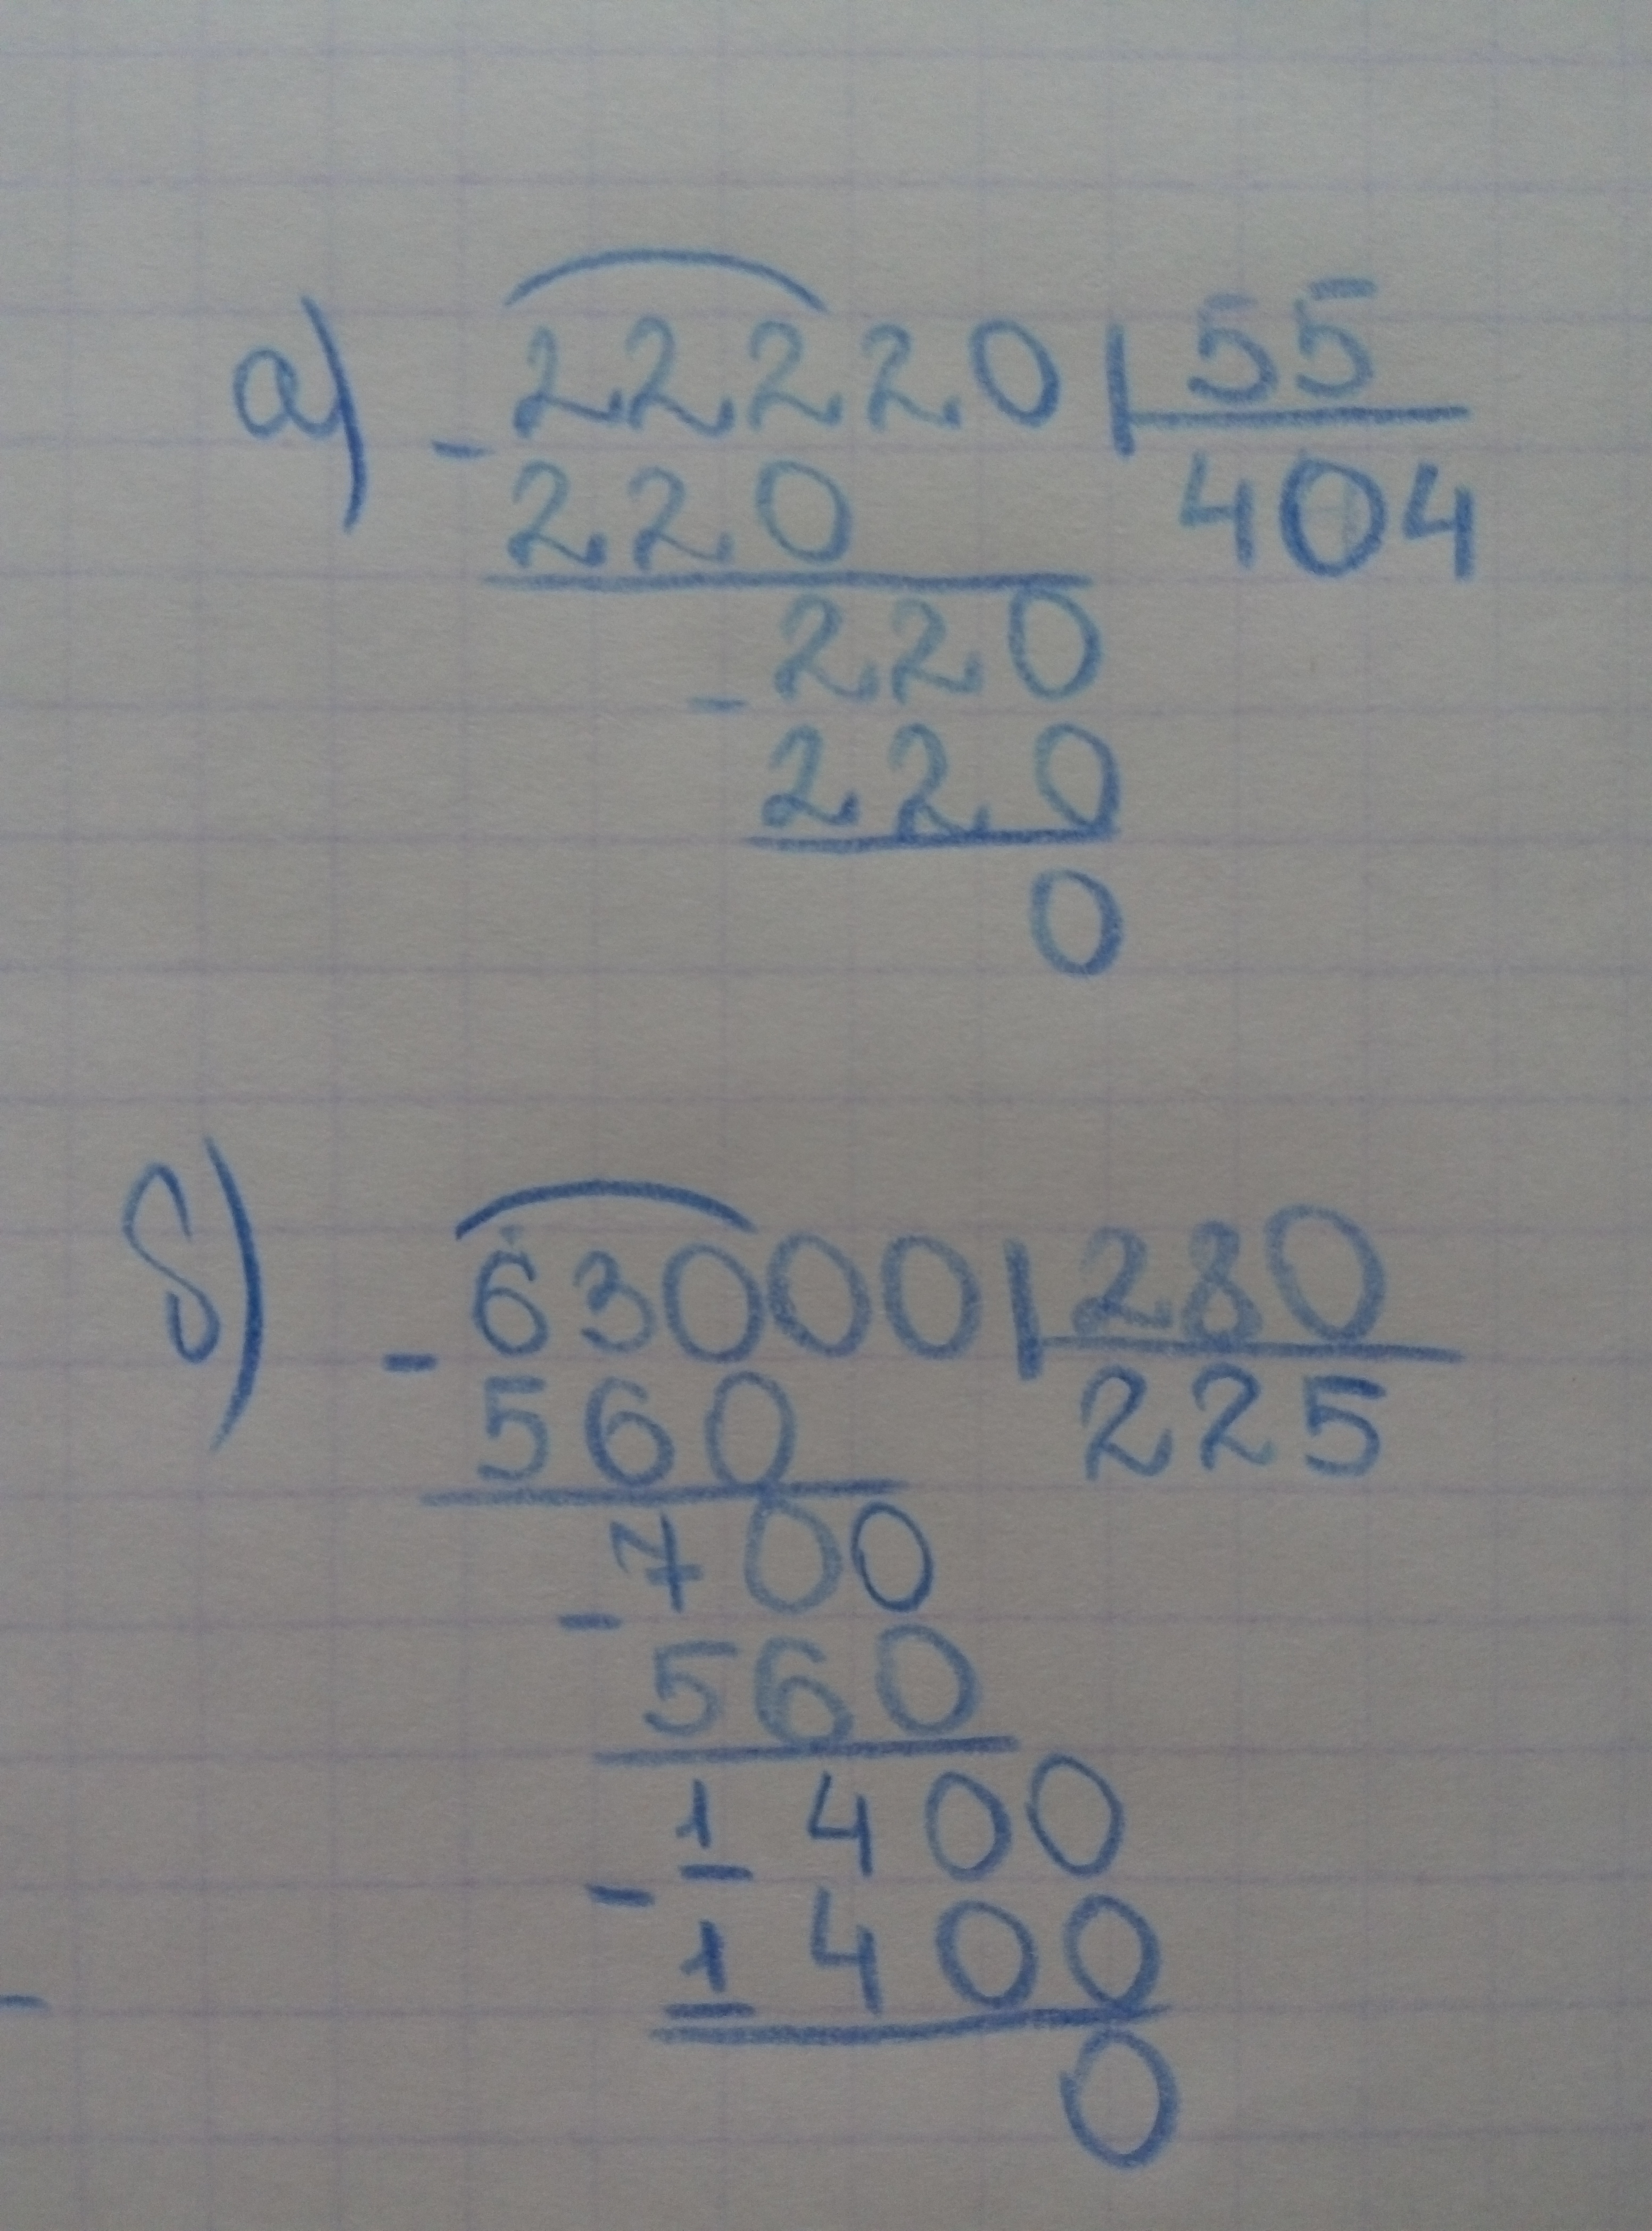 а) 22220 | 55
- 220 404
- 220
220
0
б) 63000 | 280
- 560 225
- 700
560
- 1400
1400
0